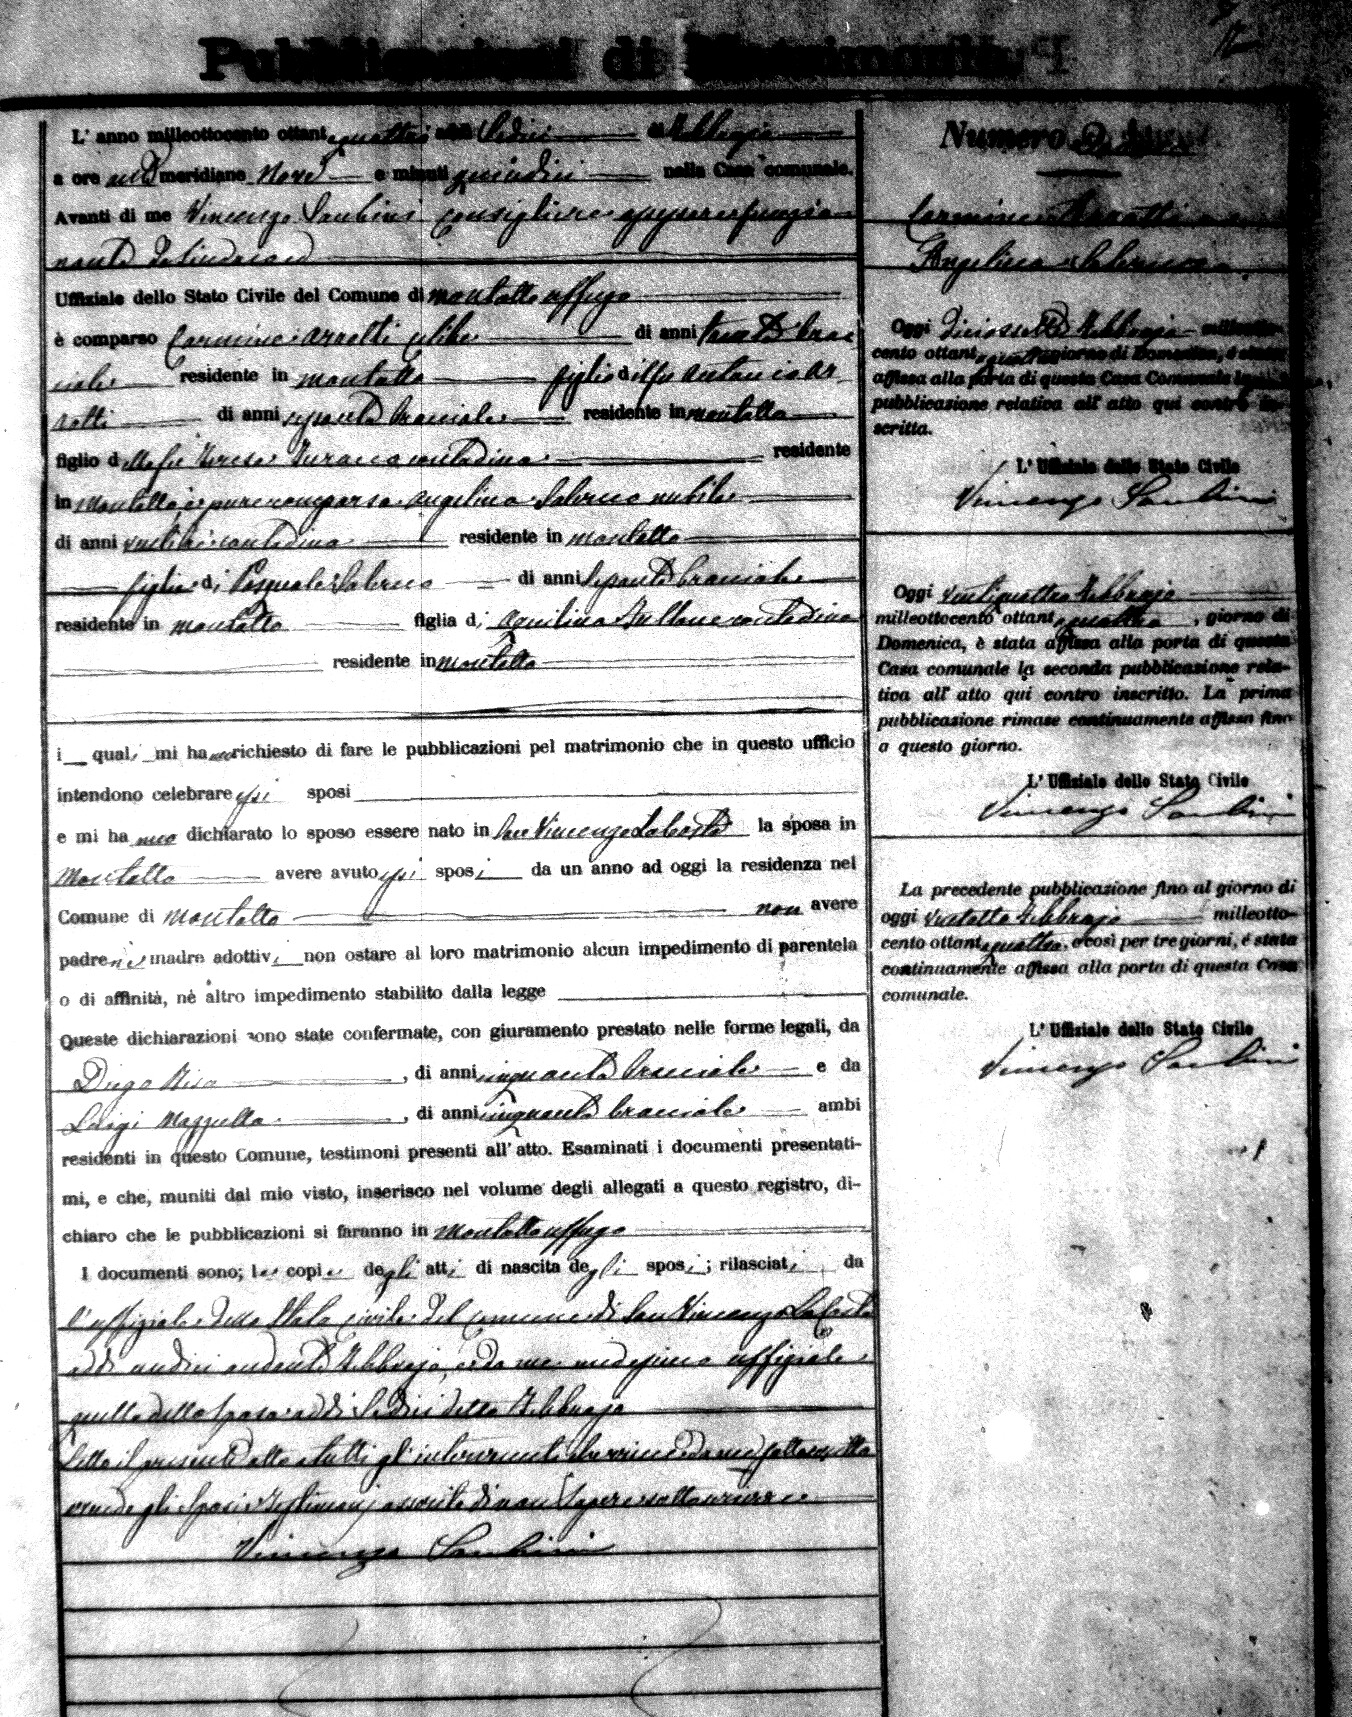 Pubblicazioni di Matrimonio
L' anno milleottocento ottantaquattro addì Sedici di Febbrajo
a ore anti meridiane Nove e minuti quindici nella Casa comunale.
Avanti di me Vincenzo consigliere funzio
nante da Sindaco
Uffiziale dello Stato Civile del Comune di Montalto Uffugo
è comparso Carmine Arrotti celibe di anni trenta brac
ciale residente in Montalto figlio di fu Antonio Ar
rotti di anni bracciale residente in Montalto
figlio della fu Teresa contadina residente
in Montalto è pure comparsa Angelina Salerno nubile
di anni contadina residente in Montalto
figlia di Pasquale Salerno di anni bracciale
residente in Montalto figlia di contadina
residente in Montalto
i quali mi hanno richiesto di fare le pubblicazioni pel matrimonio che in questo ufficio
intendono celebrare essi sposi
e mi hanno dichiarato lo sposo essere nato in San Vincenzo Lacosta la sposa in
Montalto avere avuto essi sposi da un anno ad oggi la residenza nel
Comune di Montalto non avere
padre nè madre adottivi non ostare al loro matrimonio alcun impedimento di parentela
o di affinità, nè altro impedimento stabilito dalla legge
Queste dichiarazioni sono state confermate, con giuramento prestato nelle forme legali, da
Diego , di anni cinquanta bracciale e da
Luigi Mazzulla , di anni cinquanta bracciale ambi
residenti in questo Comune, testimoni presenti all' atto. Esaminati i documenti presentati-
mi, e che, muniti dal mio visto, inserisco nel volume degli allegati a questo registro, di-
chiaro che le pubblicazioni si faranno in Montalto Uffugo
I documenti sono; le copie degli atti di nascita degli sposi; rilasciati da
l'uffiziale dello Stato civile del Comune di San Vincenzo La Costa
addì undici andante Febbrajo, e da me medesimo uffiziale
quella della sposa addì Sedici detto Febbrajo
Letto il presente atto a tutti gl' intervenuti viene da me sottoscritto
gli sposi e testimonj di non sapere sottoscrivere
Vincenzo
Numero
Carmine Arrotti
Angelina Salerno
Oggi diciassette Febbrajo milleotto-
cento ottantaquattro giorno di Domenica, è stata
affissa alla porta di questa Casa Comunale la
pubblicazione relativa all' atto qui contro in-
scritta.
L' Uffiziale dello Stato Civile
Vincenzo
Oggi ventiquattro Febbrajo
milleottocento ottantaquattro, giorno di
Domenica, è stata affissa alla porta di questa
Casa comunale la seconda pubblicazione rela-
tiva all' atto qui contro inscritto. La prima
pubblicazione rimase continuamente affissa fino
a questo giorno.
L' Uffiziale dello Stato Civile
Vincenzo
La precedente pubblicazione fino al giorno di
oggi ventotto Febbrajo milleotto-
cento ottantaquattro, e così per tre giorni, è stata
continuamente affissa alla porta di questa Casa
comunale.
L' Uffiziale dello Stato Civile
Vincenzo